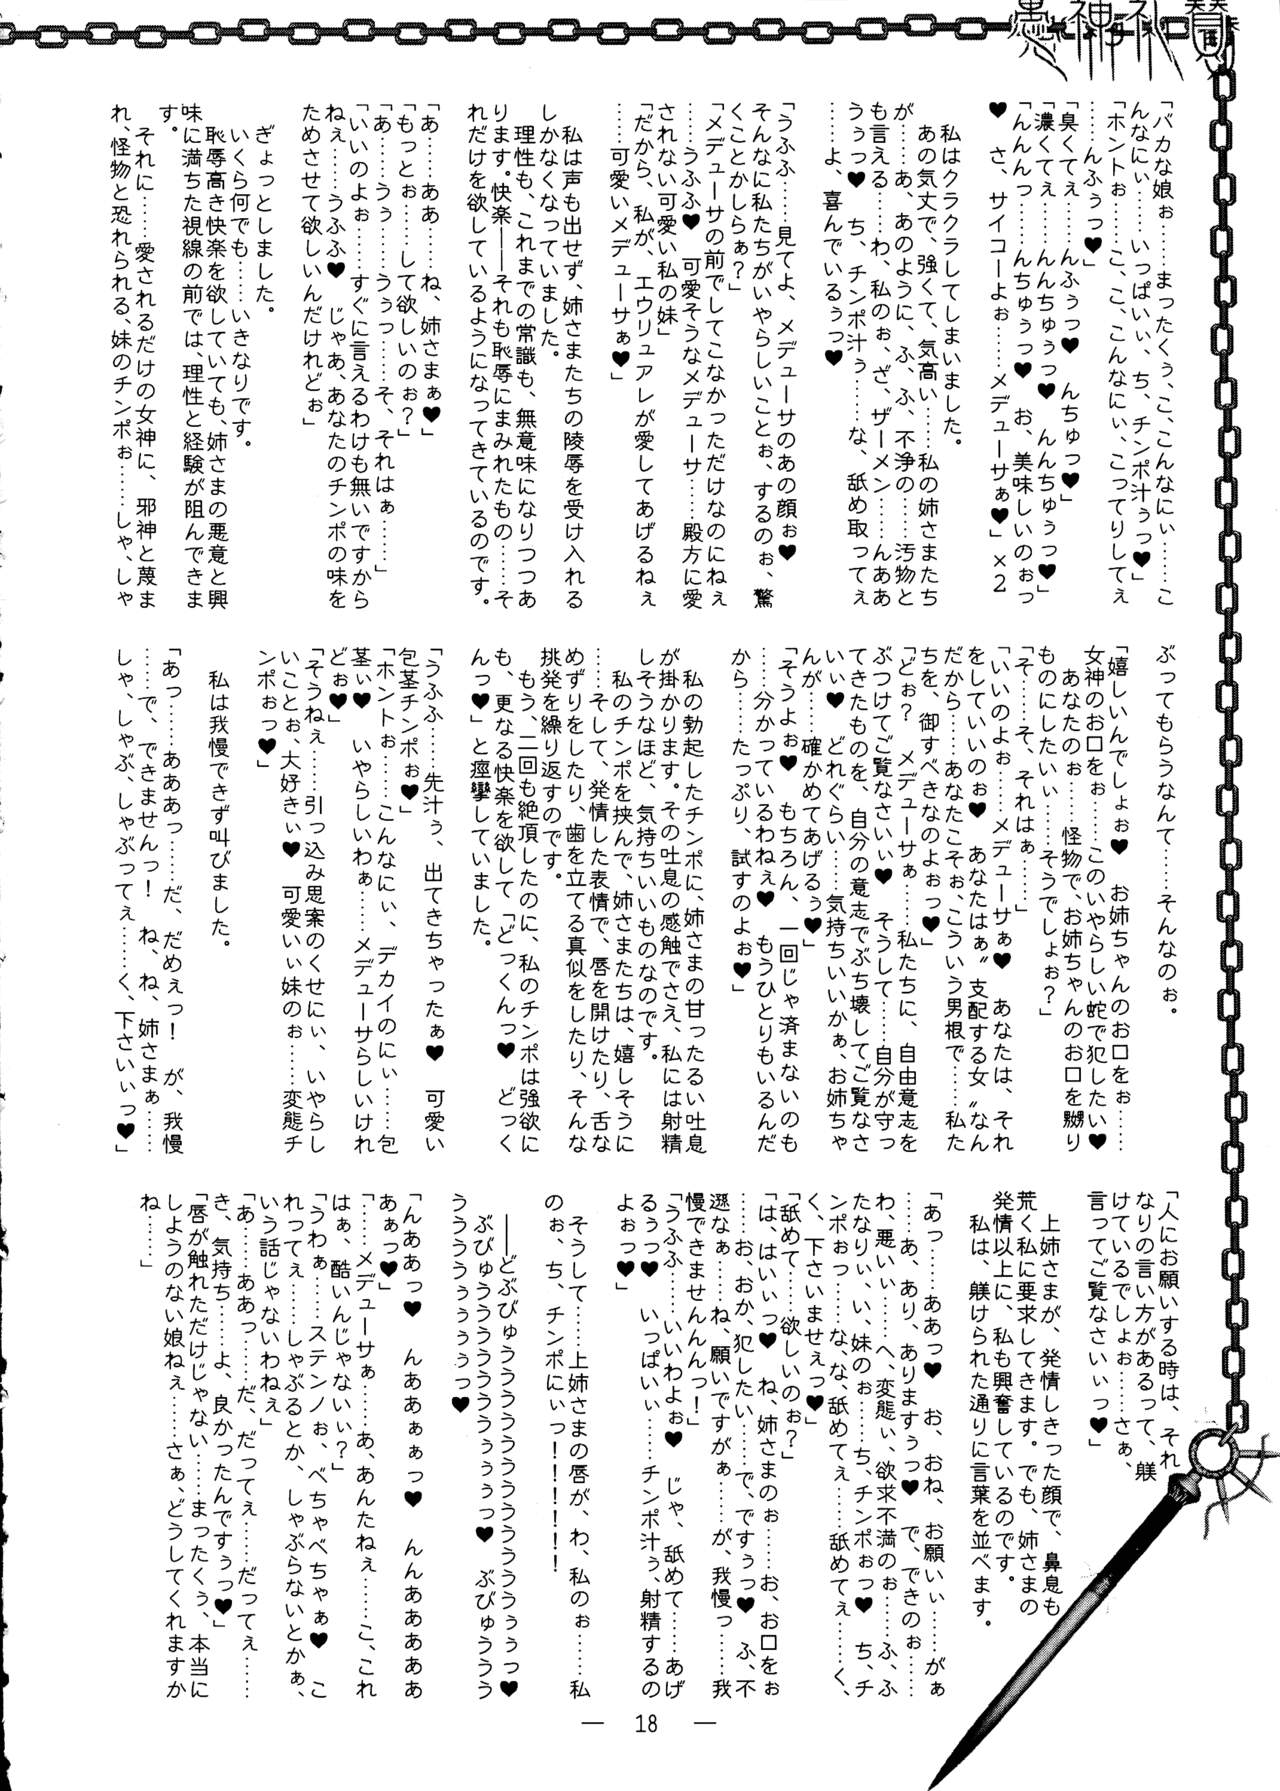 悪神礼賛
「バカな娘ぉ……まったくぅ、こ、こんなにぃ……こ
んなにぃ……いっぱいぃ、ち、チンポ汁ぅっ♥」
「ホントぉ……こ、こ、こんなにぃ、こってりしてぇ
……んふぅっ♥」
「臭くてぇ……んふぅっ♥　んちゅっ♥」
「濃くてぇ……んんちゅぅっ♥　んんちゅぅっ♥」
「んんんっ……んちゅぅっ♥　お、美味しいのぉっ
♥　さ、サイコーよぉ……メデューサぁ♥」×2
私はクラクラしてしまいました。
あの気丈で、強くて、気高い……私の姉さまたち
が……あ、あのように、ふ、ふ、不浄の……汚物と
も言える……わ、私のぉ、ざ、ザーメン……んああ
うぅっ♥　ち、チンポ汁ぅ……な、舐め取ってぇ
……よ、喜んでいるぅっ♥
「うふふ……見てよ、メデューサのあの顔ぉ♥
そんなに私たちがいやらしいことぉ、するのぉ、驚
くことかしらぁ？」
「メデューサの前でしてこなかっただけなのにねぇ
……うふふ♥　可愛そうなメデューサ……殿方に愛
されない可愛い私の妹」
「だから、私が、エウリュアレが愛してあげるねぇ
……可愛いメデューサぁ♥」
私は声も出せず、姉さまたちの陵辱を受け入れる
しかなくなっていました。
理性も、これまでの常識も、無意味になりつつあ
ります。快楽――それも恥辱にまみれたもの……そ
れだけを欲しているようになってきているのです。
「あ……ああ……ね、姉さまぁ♥」
「もっとぉ……して欲しいのぉ？」
「あ……うぅ……うぅっ……そ、それはぁ……」
「いいのよぉ……すぐに言えるわけも無いですから
ねぇ……うふふ♥　じゃあ、あなたのチンポの味を
ためさせて欲しいんだけれどぉ」
ぎょっとしました。
いくら何でも……いきなりです。
恥辱高き快楽を欲していても、姉さまの悪意と興
味に満ちた視線の前では、理性と経験が阻んできま
す。
それに……愛されるだけの女神に、邪神と蔑ま
れ、怪物と恐れられる、妹のチンポぉ……しゃ、しゃ
ぶってもらうなんて……そんなのぉ。
「嬉しいんでしょぉ♥　お姉ちゃんのお口をぉ……
女神のお口をぉ……このいやらしい蛇で犯したい♥
あなたのぉ……怪物で、お姉ちゃんのお口を嬲り
ものにしたいぃ……そうでしょぉ？」
「そ……そ、それはぁ……」
「いいのよぉ……メデューサぁ♥　あなたは、それ
をしていいのぉ♥　あなたはぁ〝支配する女〟なん
だから……あなたこそぉ、こういう男根で……私た
ちを、御すべきなのよぉっ♥」
「どぉ？　メデューサぁ……私たちに、自由意志を
ぶつけてご覧なさいぃ♥　そうして……自分が守っ
てきたものを、自分の意志でぶち壊してご覧なさ
いぃ♥　どれぐらい……気持ちいいかぁ、お姉ちゃ
んが……確かめてあげるぅ♥」
「そうよぉ♥　もちろん、一回じゃ済まないのも
……分かっているわねぇ♥　もうひとりもいるんだ
から……たっぷり、試すのよぉ♥」
私の勃起したチンポに、姉さまの甘ったるい吐息
が掛かります。その吐息の感触でさえ、私には射精
しそうなほど、気持ちいいものなのです。
私のチンポを挟んで、姉さまたちは、嬉しそうに
……そして、発情した表情で、唇を開けたり、舌な
めずりをしたり、歯を立てる真似をしたり、そんな
挑発を繰り返すのです。
もう、二回も絶頂したのに、私のチンポは強欲に
も、更なる快楽を欲して「どっくんっ♥　どっく
んっ♥」と痙攣していました。
「うふふ……先汁ぅ、出てきちゃったぁ♥　可愛い
包茎チンポぉ♥」
「ホントぉ……こんなにぃ、デカイのにぃ……包
茎ぃ♥　いやらしいわぁ……メデューサらしいけれ
どぉ♥」
「そうねぇ……引っ込み思案のくせにぃ、いやらし
いことぉ、大好きぃ♥　可愛いぃ妹のぉ……変態チ
ンポぉっ♥」
私は我慢できず叫びました。
「あっ……あああっ……だ、だめぇっ！　が、我慢
……で、できませんっ！　ね、ね、姉さまぁ……
しゃ、しゃぶ、しゃぶってぇ……く、下さいぃっ♥」
「人にお願いする時は、それ
なりの言い方があるって、躾
けているでしょぉ……さぁ、
言ってご覧なさいぃっ♥」
上姉さまが、発情しきった顔で、鼻息も
荒く私に要求してきます。でも、姉さまの
発情以上に、私も興奮しているのです。
私は、躾けられた通りに言葉を並べます。
「あっ……ああっ♥　お、おね、お願いぃ……がぁ
……あ、あり、ありますぅっ♥　で、できのぉ……
わ、悪いぃ……へ、変態ぃ、欲求不満のぉ……ふ、ふ
たなりぃ、い、妹のぉ……ち、チンポぉっ♥　ち、チ
ンポぉっ……な、な、舐めてぇ……舐めてぇ……く、
く、下さいませぇっ♥」
「舐めて……欲しいのぉ？」
「は、はいぃっ♥　ね、姉さまのぉ……お、お口をぉ
……お、おか、犯したい……で、ですぅっ♥　ふ、不
遜なぁ……ね、願いですがぁ……が、我慢っ……我
慢できませんんんっ！」
「うふふ……いいわよぉ♥　じゃ、舐めて……あげ
るぅっ♥　いっぱいぃ……チンポ汁ぅ、射精するの
よぉっ♥」
そうして……上姉さまの唇が、わ、私のぉ……私
のぉ、ち、チンポにぃっ！！！！！！
――どぶびゅうううううううううううぅぅっ♥
ぶびゅううううううううぅぅぅっ♥　ぶびゅううう
うううううぅぅぅぅっ♥
「んああっ♥　んああぁぁっ♥　んんあああああ
あぁっ♥」
「……メデューサぁ……あ、あんたねぇ……こ、これ
はぁ、酷いんじゃないぃ？」
「うわぁ……ステンノぉ、べちゃべちゃぁ♥　こ
れってぇ……しゃぶるとか、しゃぶらないとかぁ、
いう話じゃないわねぇ」
「あ……ああっ……だ、だってぇ……だってぇ……
き、気持ち……よ、良かったんですぅっ♥」
「唇が触れただけじゃない……まったくぅ、本当に
しようのない娘ねぇ……さぁ、どうしてくれますか
ね……」
― 18 ―